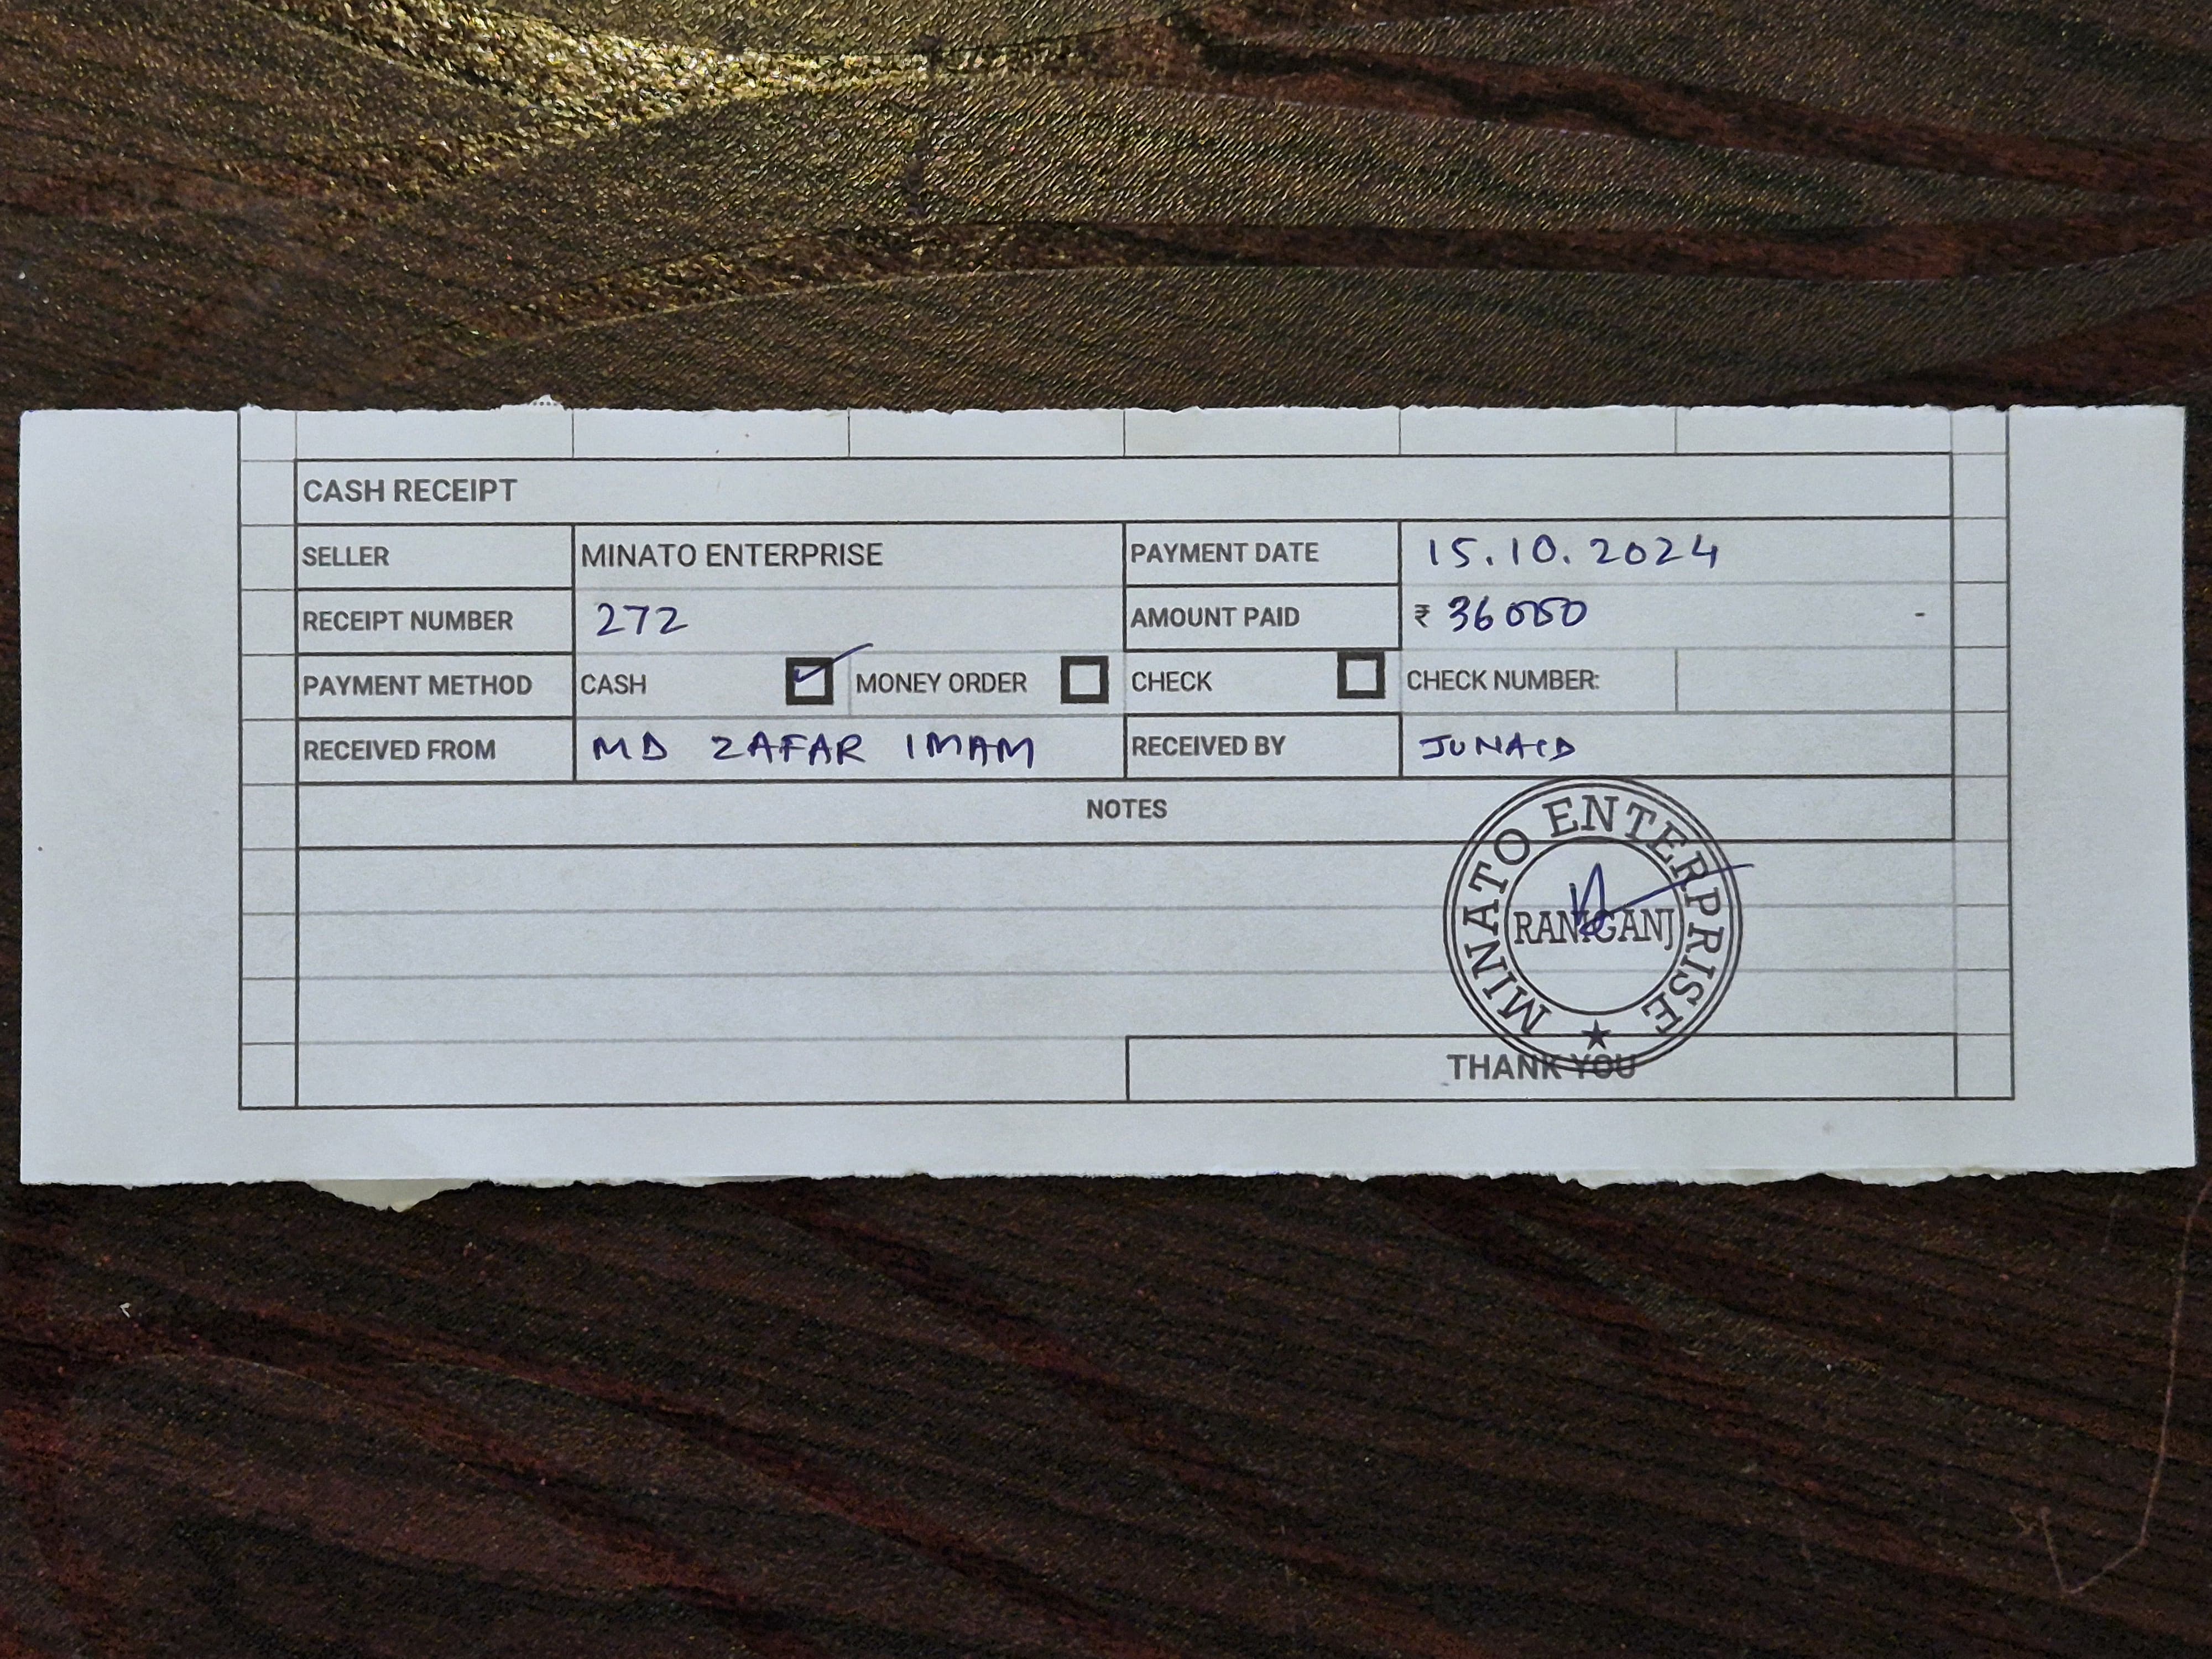 CASH RECEIPT
SELLER MINATO ENTERPRISE PAYMENT DATE 15.10.2024
RECEIPT NUMBER 272 AMOUNT PAID ₹ 36000 -
PAYMENT METHOD CASH MONEY ORDER CHECK CHECK NUMBER:
RECEIVED FROM MD ZAFAR IMAM RECEIVED BY JUNAID
NOTES
MINATO ENTERPRISE
RANIGANJ
THANK YOU